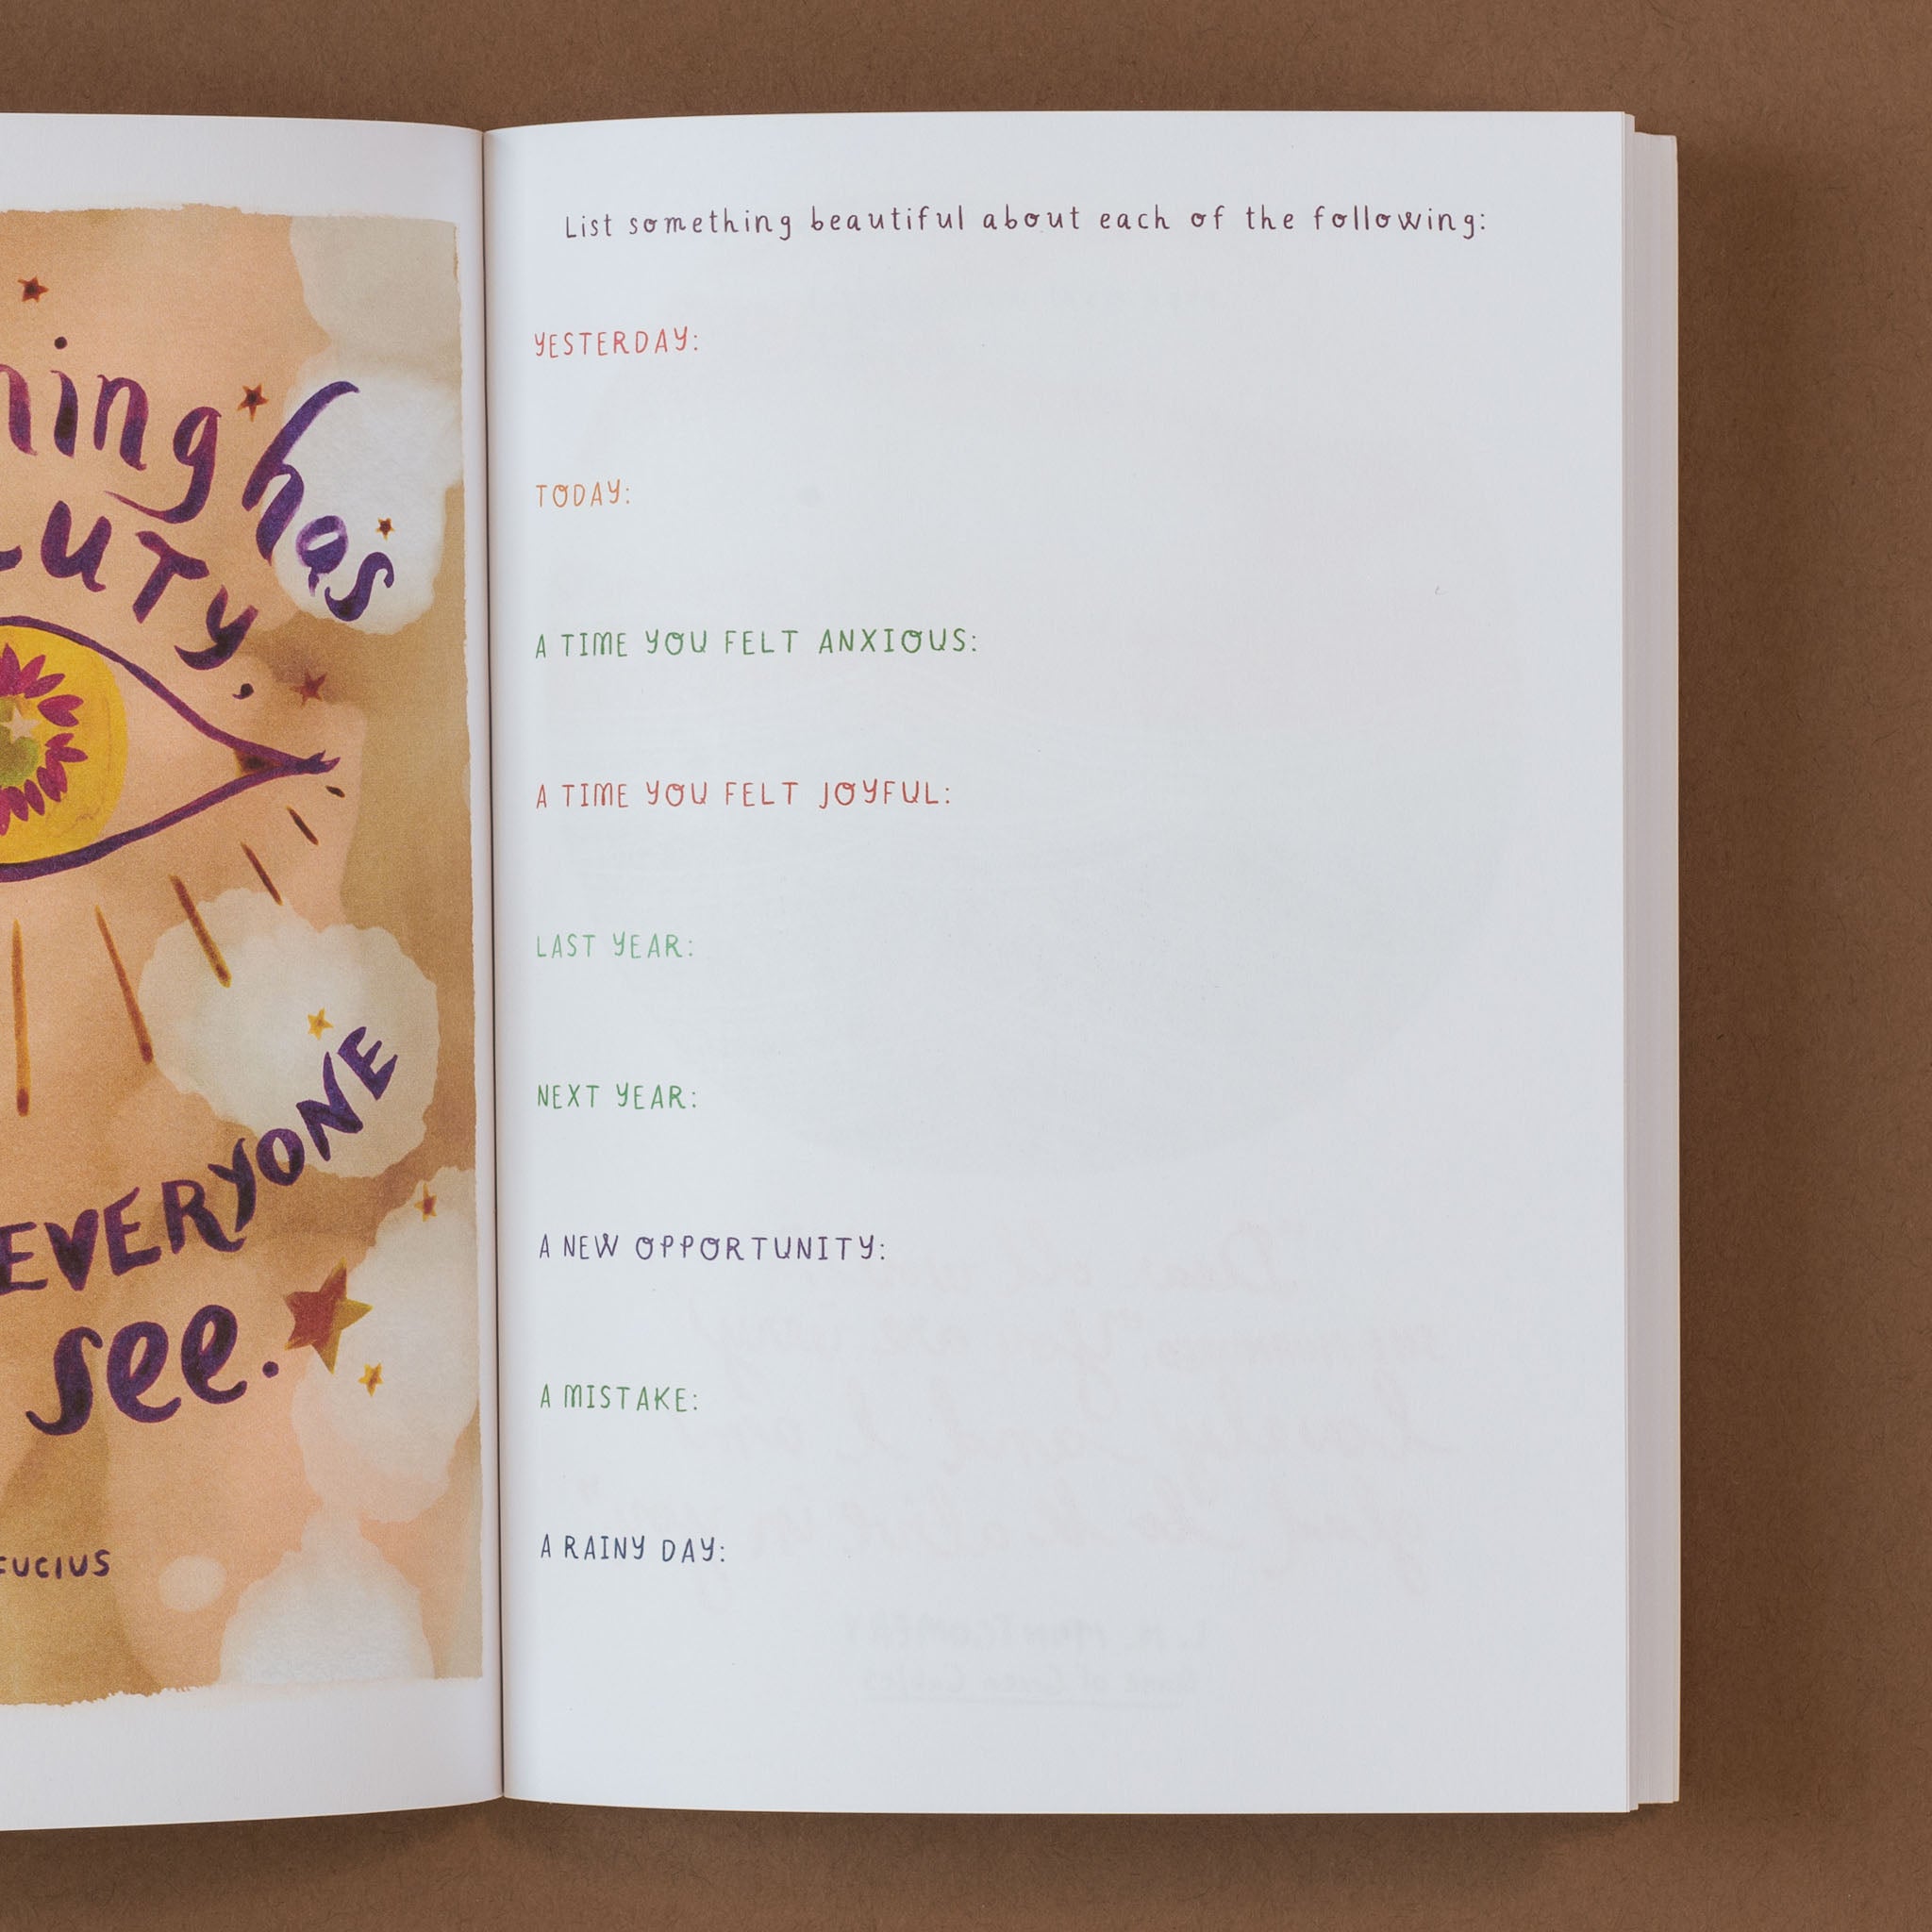 ning has
uty,
EVERYONE
see.
FUCIUS
List something beautiful about each of the following:
YESTERDAY:
TODAY:
A TIME YOU FELT ANXIOUS:
A TIME YOU FELT JOYFUL:
LAST YEAR:
NEXT YEAR:
A NEW OPPORTUNITY:
A MISTAKE:
A RAINY DAY: